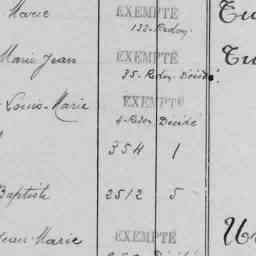 Marie EXEMPTÉ
132. Redon.
Marie Jean EXEMPTÉ
35. Redon. Décédé.
Louis-Marie EXEMPTÉ
4-Redon Décédé
354 1
Baptiste 2512 5
Jean-Marie EXEMPTÉ